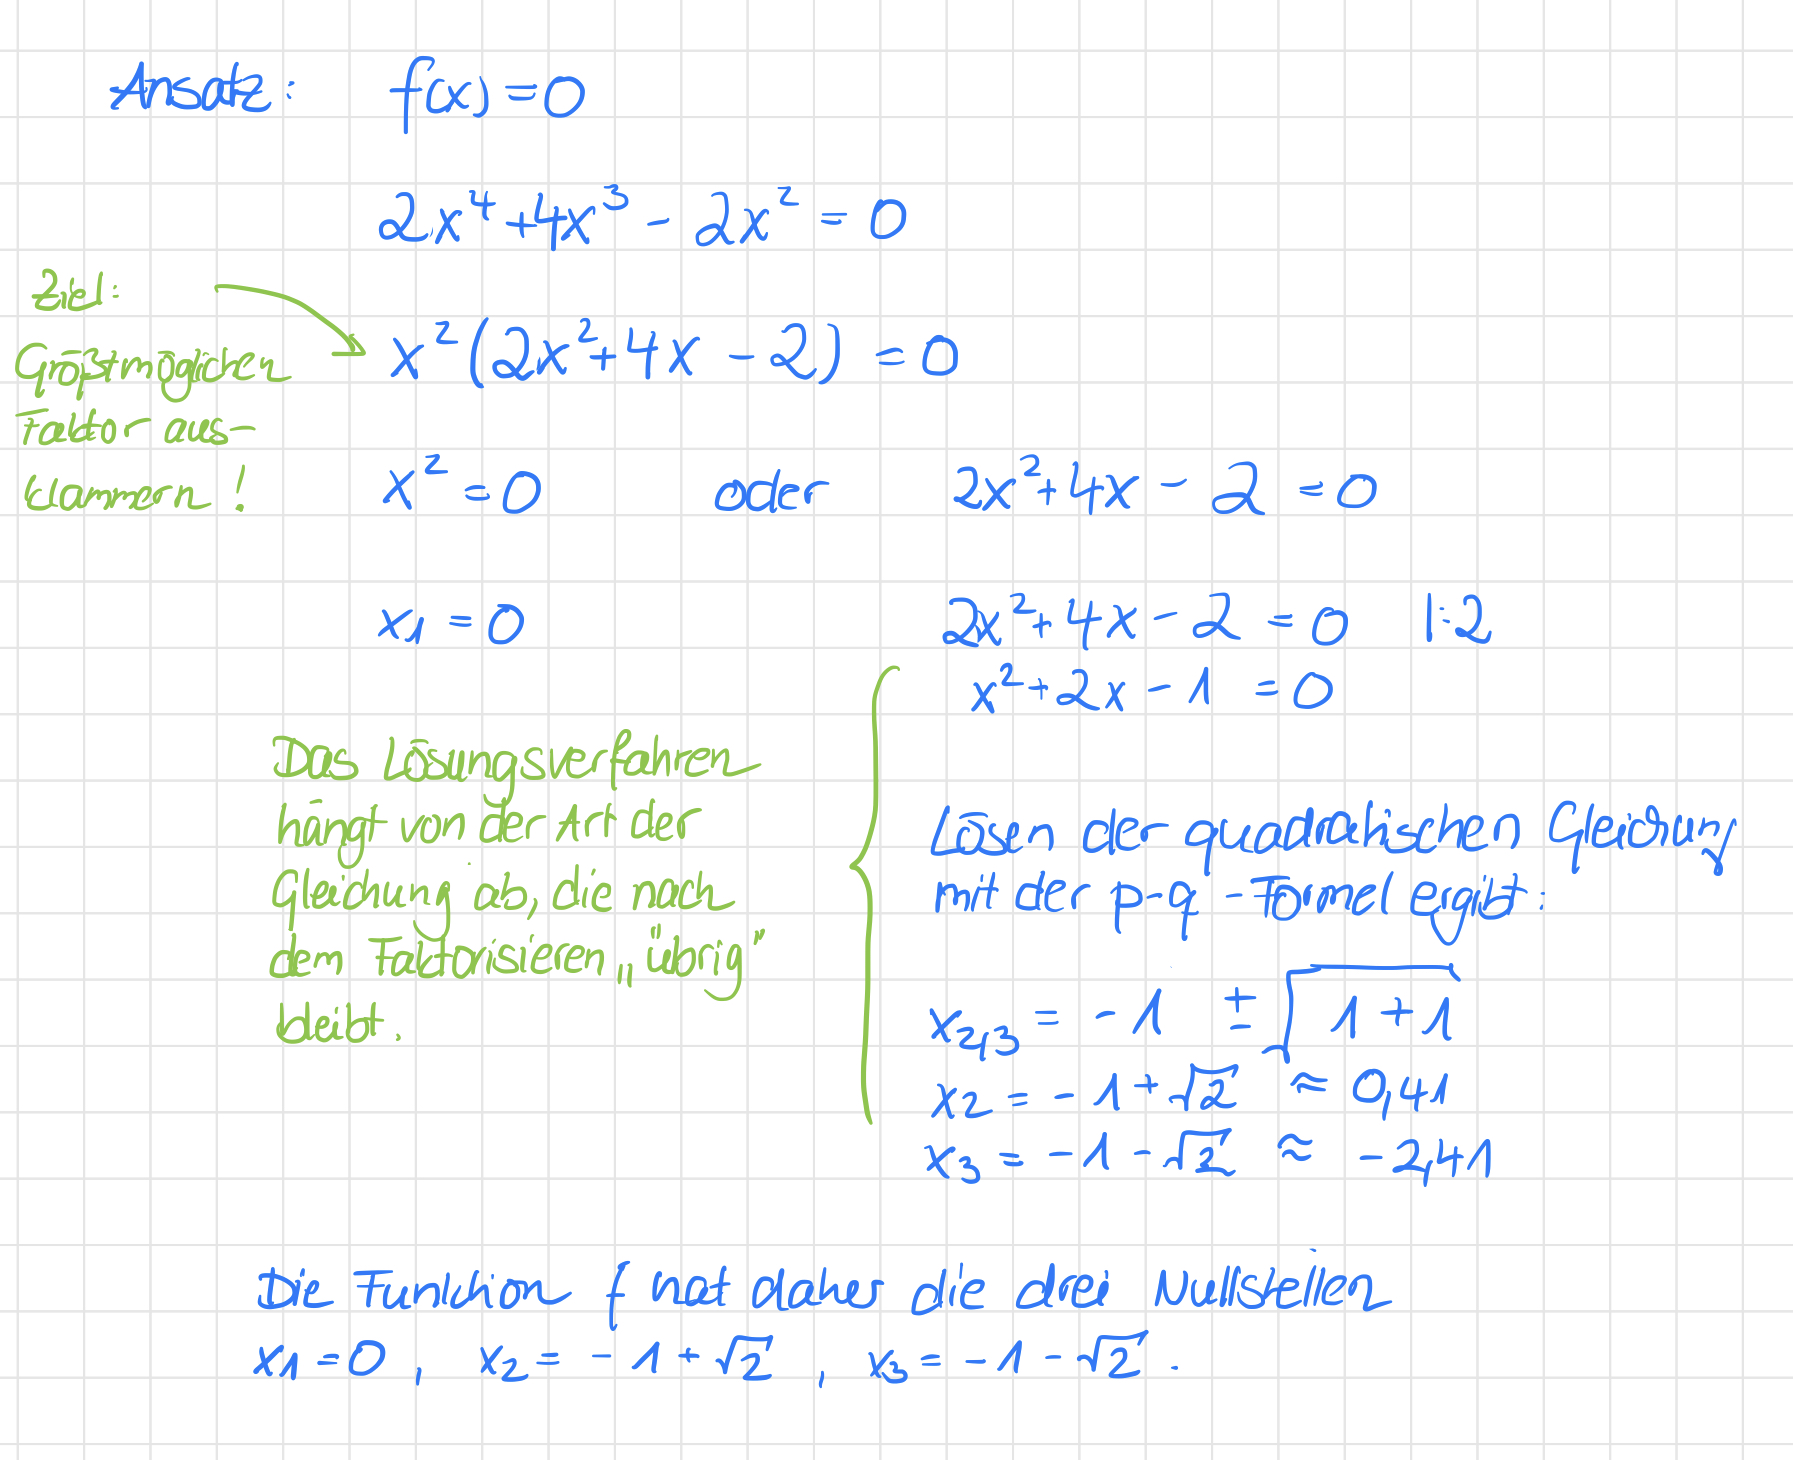 Ansatz: f(x) = 0
2x⁴ + 4x³ - 2x² = 0
Ziel:
Größtmöglichen
Faktor aus-
klammern!
x² (2x² + 4x - 2) = 0
x² = 0 oder 2x² + 4x - 2 = 0
x₁ = 0 2x² + 4x - 2 = 0 |:2
x² + 2x - 1 = 0
Das Lösungsverfahren
hängt von der Art der
Gleichung ab, die nach
dem Faktorisieren „übrig"
bleibt.
Lösen der quadratischen Gleichung
mit der p-q-Formel ergibt:
x₂,₃ = -1 ± √(1+1)
x₂ = -1 + √2 ≈ 0,41
x₃ = -1 - √2 ≈ -2,41
Die Funktion f hat daher die drei Nullstellen
x₁ = 0, x₂ = -1 + √2, x₃ = -1 - √2.